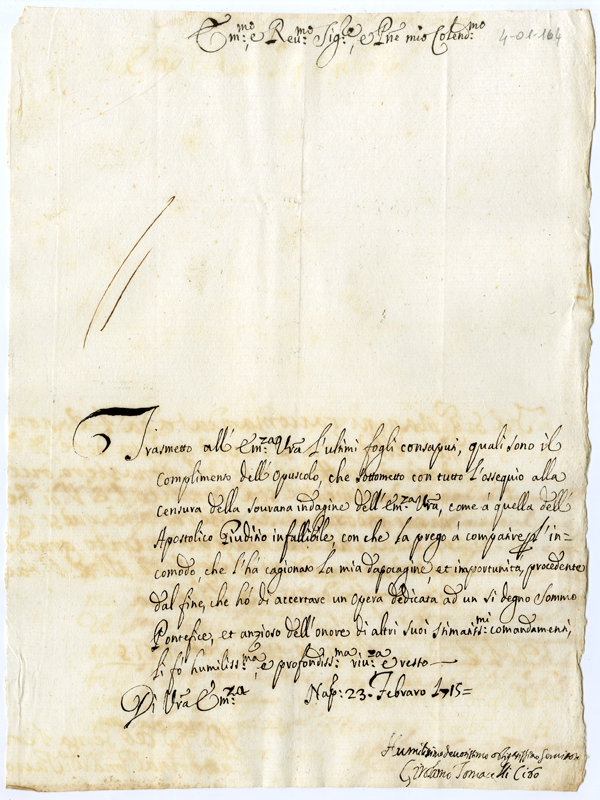 Em:mo e Reu:mo Sig:re, e Pne mio Colend:mo
4-01-164
Trasmetto all' Em:za Vra l'ultimi fogli consapui, quali sono il
complimento dell'Opuscolo, che sottometto con tutto l'ossequio alla
censura della sourana indagine dell'Em:za Vra, come à quella dell'
Apostolico Giudizio infallibile, con che la prego à compatire l'in=
comodo, che l'hà cagionato la mia dapocagine, et importunità, procedente
dal fine, che hò di accertare un Opera dedicata ad un si degno Sommo
Pontefice, et anzioso dell'onore di altri suoi stimatis:mi comandamenti,
li fò humiliss:ma, e profondiss:ma riu:za e resto
Di Vra Em:za Nap: 23. Febraro 1715=
Humilissimo deuotissimo obligatissimo Seruitore
Girolamo Tomacelli Cibo